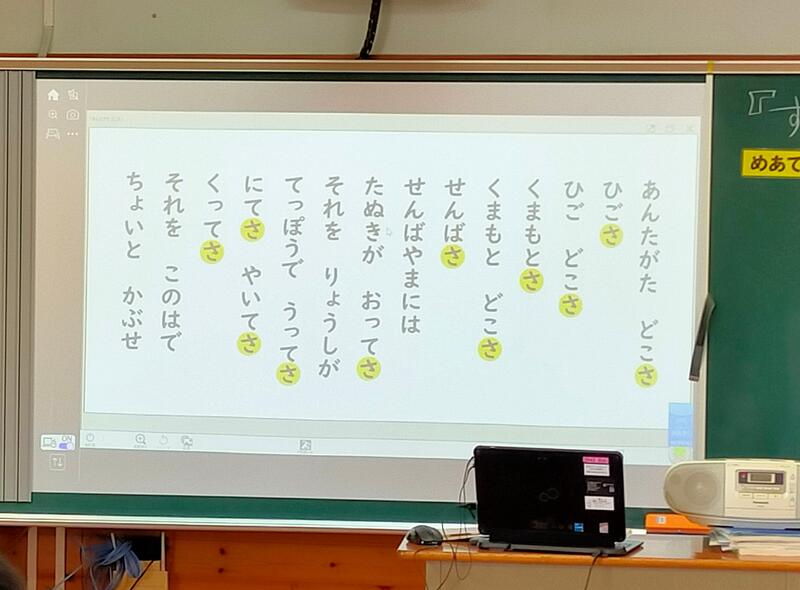 あんたがた どこさ
ひごさ
ひご どこさ
くまもとさ
くまもと どこさ
せんばさ
せんばやまには
たぬきが おってさ
それを りょうしが
てっぽうで うってさ
にてさ やいてさ
くってさ
それを このはで
ちょいと かぶせ
『す
めあて
ON